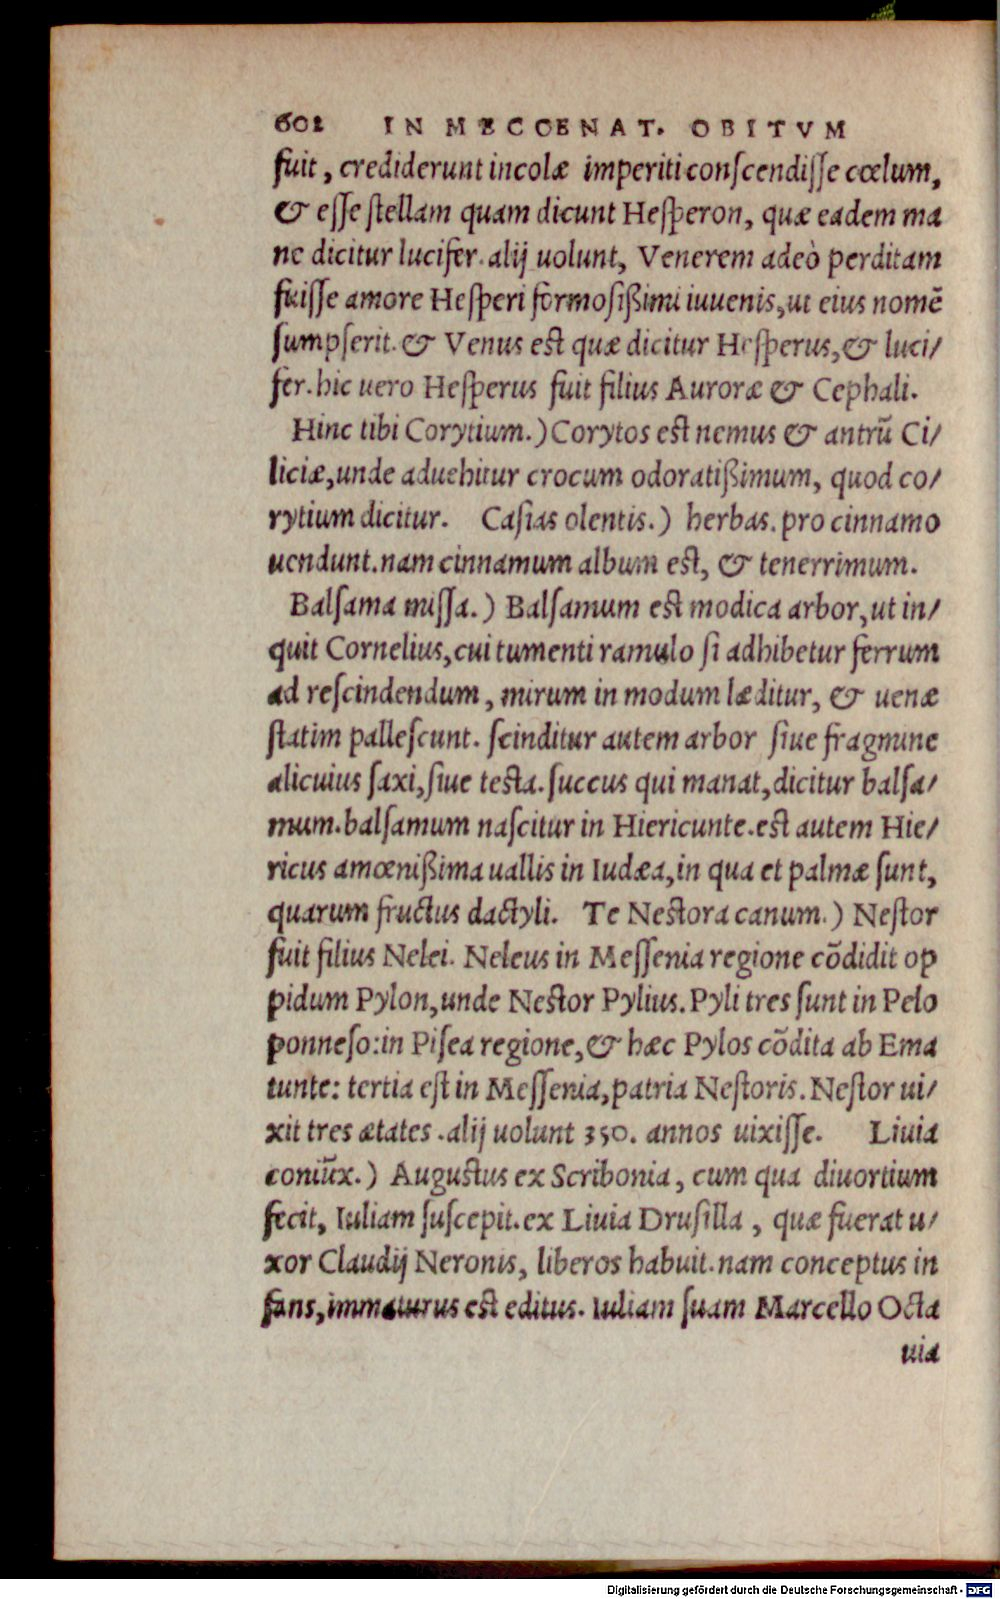 602 IN MECCENAT. OBITVM
fuit, crediderunt incolæ imperiti conſcendiſſe cœlum,
& eſſe ſtellam quam dicunt Heſperon, quæ eadem ma
ne dicitur lucifer. alij uolunt, Venerem adeò perditam
fuiſſe amore Heſperi formoſißimi iuuenis, ut eius nomē
ſumpſerit. & Venus eſt quæ dicitur Heſperus, & luci/
fer. hic uero Heſperus fuit filius Auroræ & Cephali.
Hinc tibi Corytium.) Corytos eſt nemus & antrū Ci/
liciæ, unde aduehitur crocum odoratißimum, quod co/
rytium dicitur. Caſias olentis.) herbas. pro cinnamo
uendunt. nam cinnamum album eſt, & tenerrimum.
Balſama miſſa.) Balſamum eſt modica arbor, ut in/
quit Cornelius, cui tumenti ramulo ſi adhibetur ferrum
ad reſcindendum, mirum in modum læditur, & uenæ
ſtatim palleſcunt. ſcinditur autem arbor ſiue fragmine
alicuius ſaxi, ſiue teſta. ſuccus qui manat, dicitur balſa/
mum. balſamum naſcitur in Hiericunte. eſt autem Hie/
ricus amœnißima uallis in Iudæa, in qua et palmæ ſunt,
quarum fructus dactyli. Te Neſtora canum.) Neſtor
fuit filius Nelei. Neleus in Meſſenia regione cōdidit op
pidum Pylon, unde Neſtor Pylius. Pyli tres ſunt in Pelo
ponneſo: in Piſea regione, & hæc Pylos cōdita ab Ema
tunte: tertia eſt in Meſſenia, patria Neſtoris. Neſtor ui/
xit tres ætates. alij uolunt 350. annos uixiſſe. Liuia
coniūx.) Auguſtus ex Scribonia, cum qua diuortium
fecit, Iuliam ſuſcepit. ex Liuia Druſilla, quæ fuerat u/
xor Claudij Neronis, liberos habuit. nam conceptus in
fans, immaturus eſt editus. Iuliam ſuam Marcello Octa
uia
Digitalisierung gefördert durch die Deutsche Forschungsgemeinschaft - DFG